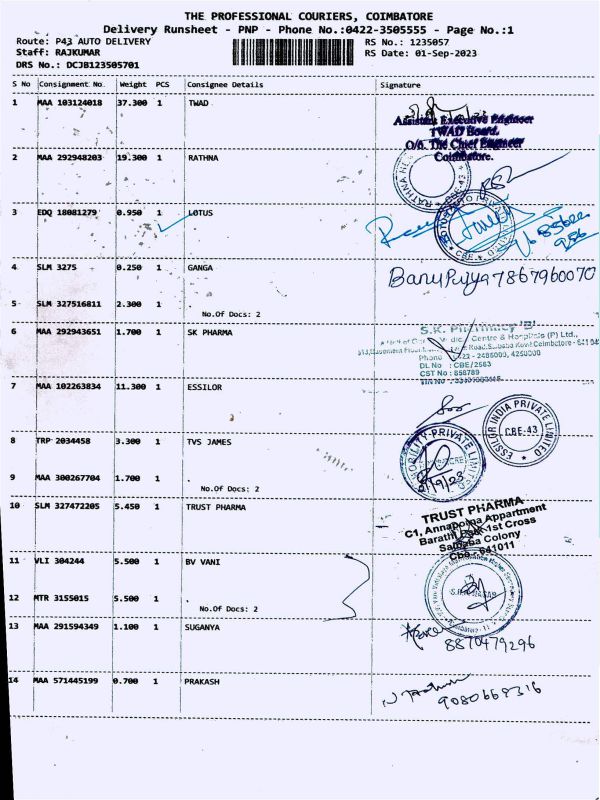 THE PROFESSIONAL COURIERS, COIMBATORE
Delivery Runsheet - PNP - Phone No.:0422-3505555 - Page No.:1
Route: P43 AUTO DELIVERY RS No.: 1235057
Staff: RAJKUMAR RS Date: 01-Sep-2023
DRS No.: DCJB123505701
S No Consignment No. Weight PCS Consignee Details Signature
1 MAA 103124018 37.300 1 TWAD
Assistant Executive Engineer
TWAD Board,
O/o. The Chief Engineer
Coimbatore.
2 MAA 292948203 19.300 1 RATHNA
RATHNA
CBE-43
3 EDQ 18081279 0.950 1 LOTUS
CBE
4 SLM 3275 0.250 1 GANGA
Banupriya 7867960070
5 SLM 327516811 2.300 1
No.Of Docs: 2
6 MAA 292943651 1.700 1 SK PHARMA
S.K. Pharmacy 'B'
Centre & Hospitals (P) Ltd.,
Coimbatore - 641
Phone : 0422 - 2485000, 4250000
DL No : CBE/2563
CST No : 858789
7 MAA 102263834 11.300 1 ESSILOR
ESSILOR INDIA PRIVATE LIMITED
CBE-43
8 TRP 2034458 3.300 1 TVS JAMES
MOBILITY PRIVATE LIMITED
1/9/23
9 MAA 300267704 1.700 1
No.Of Docs: 2
10 SLM 327472205 5.450 1 TRUST PHARMA
TRUST PHARMA
C1, Annapoorna Appartment
Barathi Park 1st Cross
Saibaba Colony
Cbe - 641011
11 VLI 304244 5.500 1 BV VANI
12 MTR 3155015 5.500 1
No.Of Docs: 2
13 MAA 291594349 1.100 1 SUGANYA
8870479296
14 MAA 571445199 0.700 1 PRAKASH
9080668316